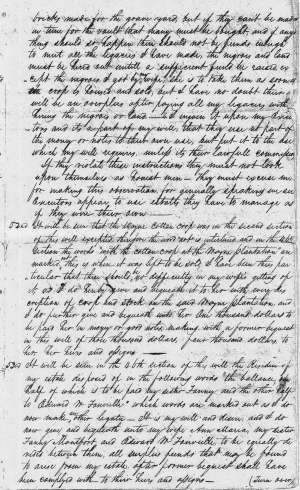 bricks made for the grave yard, but if they can't be made
in time for the vault that many must be bought, and if any
thing should so happen there should not be funds enough
to meet all the legacies I have made, the negroes and land
must be hired out until a sufficient fund be raised ex
cept the negroes I got by, she is to take them as soon as
the crop is housed and sold, but I have no doubt there
will be an overplus after paying all my legacies with
hiring the negroes or land — I enjoin it upon my Execu
tors and its a part of my will, that they use no part of
the money or notes to their own use, but put it to the use
which my will requires, until its their lawfull
If they violate these instructions they must never look
upon themselves as honest men — they must excuse me
for making this observation for generally speaking on
Executors appear to use estates they have to manage as
if they were their own
It will be seen that the Mayne cotton crop was in the second section
of this will excepted therefore the word not is interlined and in the 26th
section the words with the cotton crop at the Mayne plantation are
marked, this is where it was left to be sold & I have been thus par
ticular that there should be no difficulty in my wife's getting of
it as I do hereby give and bequeath it to her with every des
cription of crop and stock on the said Mayne plantation, and
I do further give and bequeath unto her One thousand dollars to
be paid her in money or good notes making with a former bequest
in this will of three thousand dollars, four thousand dollars to
her, her heirs and assigns —
It will be seen in the 26th section of this will the Residue of
my estate disposed of in the following words "the balance, one
half of which is to be paid my sister Fanny and the other half
to Edward W. Fonville" which words are marked out as I do
now make other legatees. It is my will and desire, and I do
now give and bequeath unto my wife Ann Maria, my sister
Fanny Montfort, and Edward W. Fonville to be equally di
vided between them, all surplus funds that may be found
to arise from my estate after former bequest shall have
been complied with to their heirs and assigns — (Turn over)